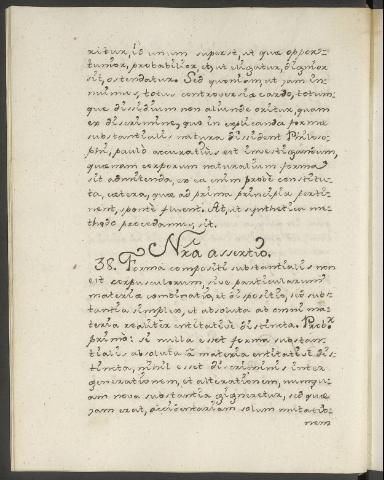 ritur, id unum superst, ut quæ oppor-
tunior, probabilior, et, ut eligatur, dignior
sit, ostendatur. Sed quoniam, ut jam in-
nuimus, totus controversiæ cardo, totum-
que dissidium non aliunde oritur, quam
ex discrimine, quo in explicanda forma
substantialis natura dissident Philoso-
phi, paulo accuratius est investigandum,
quænam corporum naturalium forma
sit admittenda, ex ea enim probe constitu-
ta, cætera, quæ ad prima principia perti-
nent, sponte fluent. At, ut synthetica me-
thodo procedamus, sit.
Nrã assertio.
38. Forma compositi substantialis non
est corpusculorum, sive particularum
materiæ combinatio, et dispositio, sed sub-
tantia simplex, et absoluta ab omni ma-
teria realiter entitative distincta. Probr
primo: si nulla esset forma substan-
tialis absoluta a materia entitative dis-
tincta, nihil esset discriminis inter
generationem, et alterationem, nunqu-
am nova substantia gigneretur, sed quæ
jam erat, accidentariam solum mutatio-
nem